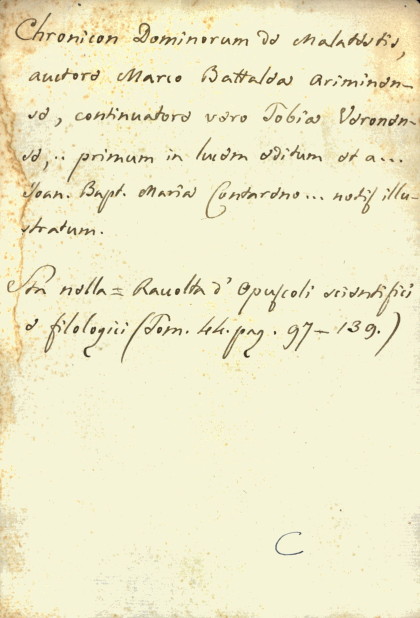 Chronicon Dominorum de Malatestis,
auctore Marco Battalea Ariminen-
se, continuatore vero Tobia Veronen-
se,.. primum in lucem editum et a...
Joan. Bapt. Maria Contareno... notis illu-
stratum.
Sta nella = Raccolta d' Opuscoli scientifici
e filologici (Tom. 44. pag. 97 - 139.)
C